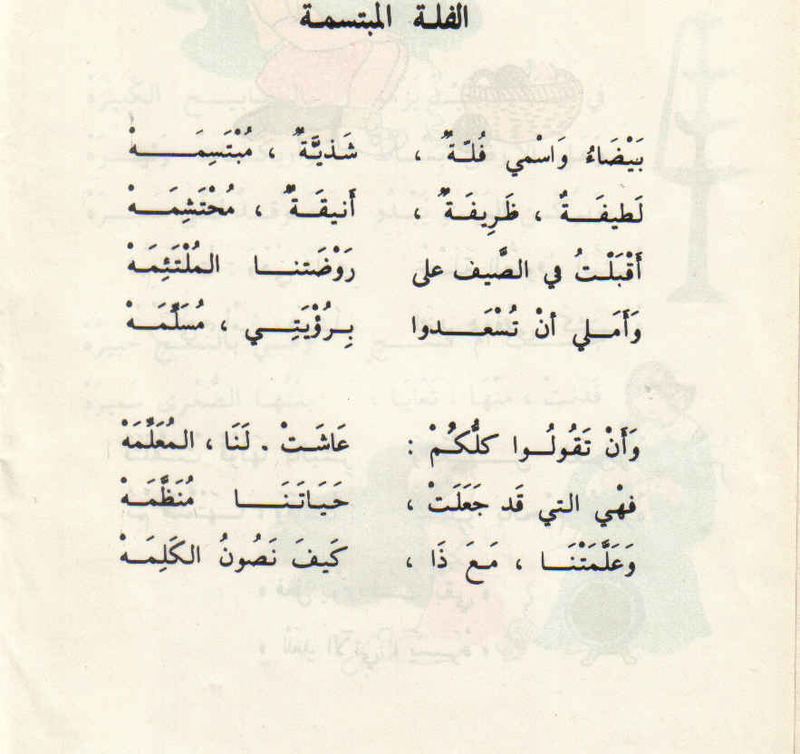 الفلة المبتسمة
بَيْضَاءُ وَاسْمي فُلّةٌ ، شَذيَّةٌ ، مُبْتَسِمَهْ
لَطيفَةٌ ، ظَريفَةٌ ، أَنيقَةٌ ، مُحْتَشِمَهْ
أَقْبَلْتُ في الصَّيف على رَوْضَتنا المُلْتَئِمَهْ
وَأَمَلي أنْ تُسْعَدوا بِرُؤْيَتِي ، مُسَلِّمَهْ
وَأَنْ تَقُولُوا كلُّكُمْ : عَاشَتْ . لَنَا ، المُعَلِّمَهْ
فهْي التي قَد جَعَلَتْ ، حَيَاتَنَا مُنَظَّمَهْ
وَعَلَّمَتْنَا ، مَعَ ذَا ، كَيفَ نَصُونُ الكَلِمَهْ